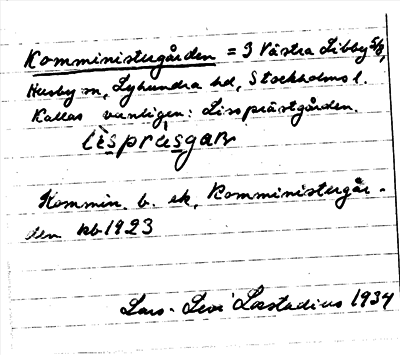 Komministergården = 3 Västra Libby 5/8,
Husby sn, Lyhundra hd, Stockholms l.
Kallas vanligen: Lissprästgården.
Kommin. b. ek, Komministergår-
den kb 1923
Lars-Levi Læstadius 1934